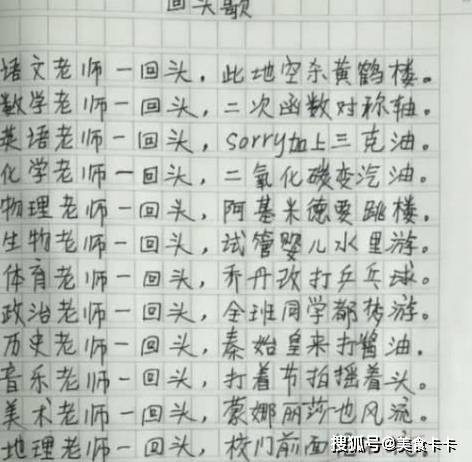 回头歌
语文老师一回头，此地空余黄鹤楼。
数学老师一回头，二次函数对称轴。
英语老师一回头，sorry加上三克油。
化学老师一回头，二氧化碳变汽油。
物理老师一回头，阿基米德要跳楼。
生物老师一回头，试管婴儿水里游。
体育老师一回头，乔丹改打乒乓球。
政治老师一回头，全班同学都梦游。
历史老师一回头，秦始皇来打酱油。
音乐老师一回头，打着节拍摇着头。
美术老师一回头，蒙娜丽莎也风流。
地理老师一回头，校门前面
搜狐号@美食卡卡